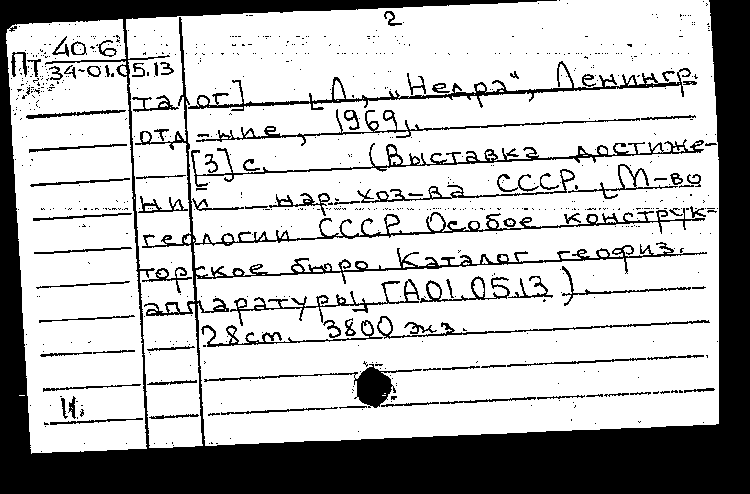 2
Пт 40-6
34-01.05.13
талог]. [Л., „Недра", Ленингр.
отд-ние, 1969].
[3] с. (Выставка достиже-
ний нар. хоз-ва СССР. [М-во
геологии СССР. Особое конструк-
торское бюро. Каталог геофиз.
аппаратуры], ГА01.05.13).
28 см. 3800 экз.
И.